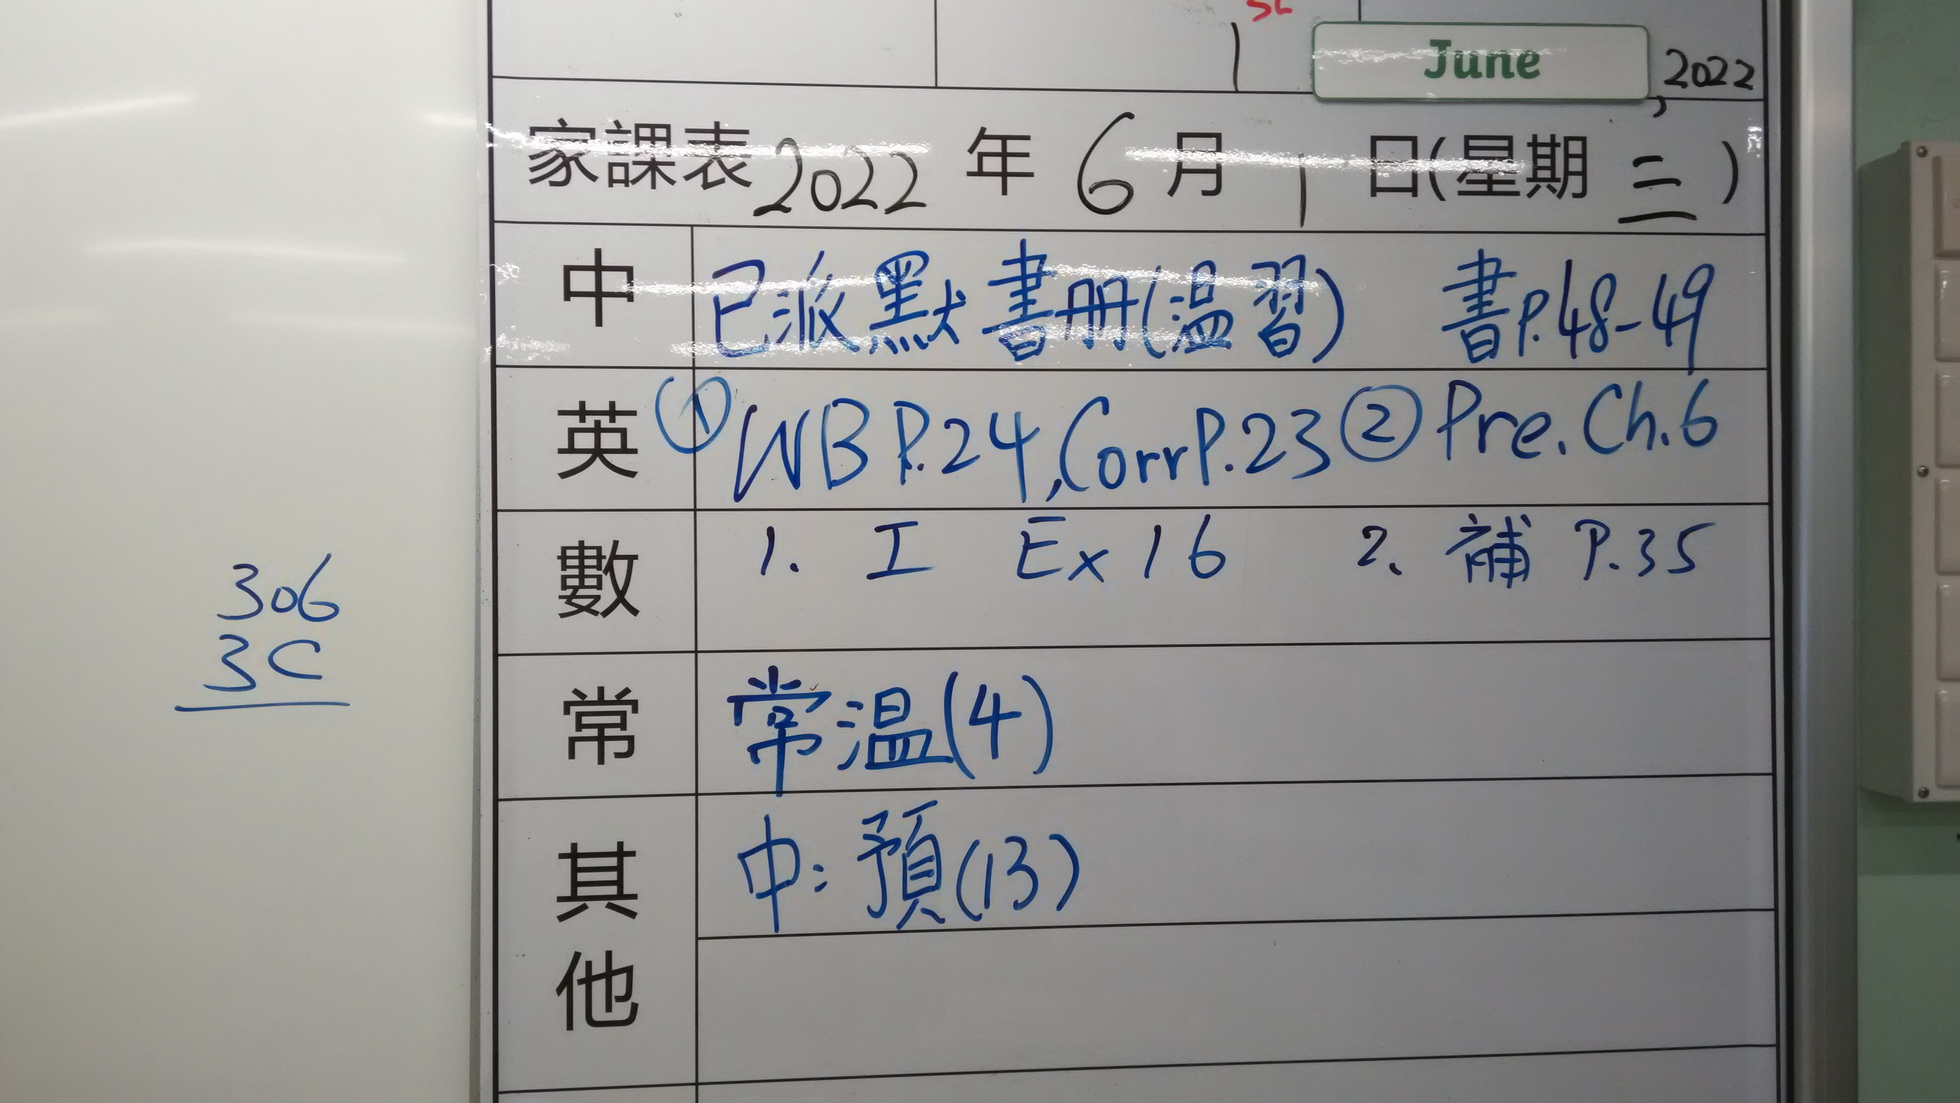 1 June, 2022
家課表 2022 年 6 月 1 日(星期 三)
中 已派默書冊(温習) 書P.48-49
英 ① WB P.24, Corr P.23 ② Pre. Ch.6
數 1. 工 Ex 16 2. 補 P.35
常 常温(4)
其他 中: 預(13)
306
3C